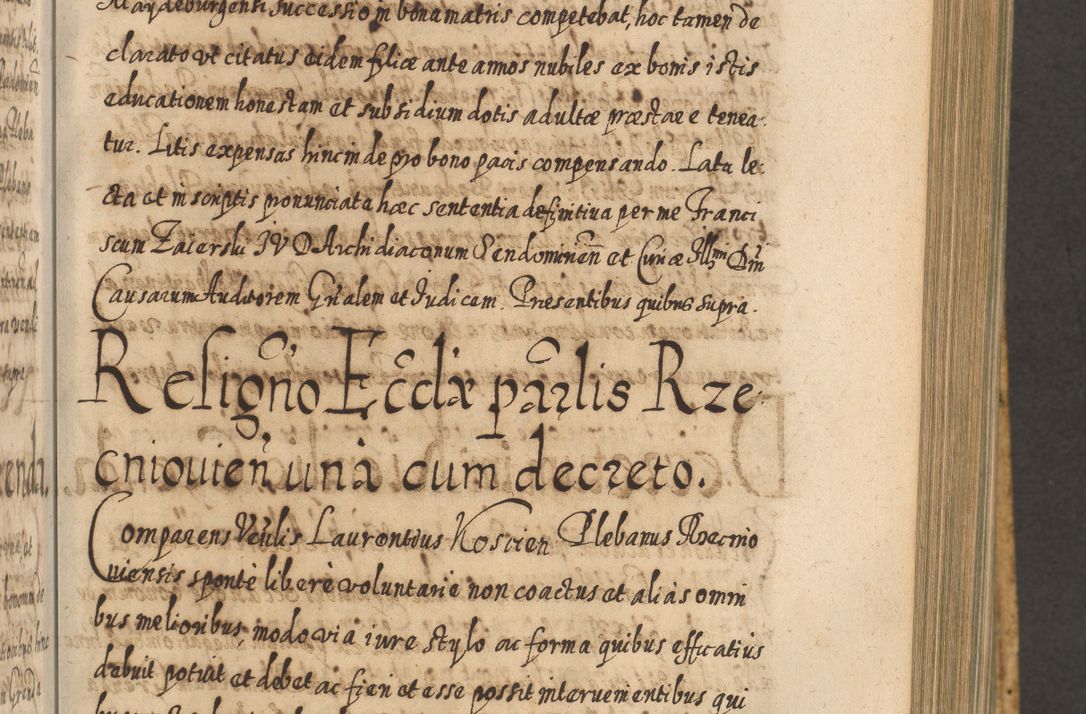 Maydeburgensi successio in bona matris competebat, hoc tamen de
clarato ut citatus eidem filiæ ante annos nubiles ex bonis istis
educationem honestam et subsidium dotis adultæ præstare tenea-
tur. Litis expensas hincinde pro bono pacis compensando. Lata le-
cta et in scriptis pronunciata hæc sententia definitiua per me Franci
scum Zaierski IVD Archidiaconum Sendominen̄ et Curiæ Illmi Dni
Causarum Auditorem Gn̄alem et Iudicem. Præsentibus quibus supra.
Resigno Eccliæ parlis Rze-
cniouien̄ una cum decreto.
Comparens Venlis Laurentius Koscien Plebanus Rzecnio
uiensis spontè liberè voluntariè non coactus et aliàs omni
bus melioribus, modo via iure stylo ac forma quibus efficatius
debuit potuit et debet ac fieri et esse possit interuenientibus qui